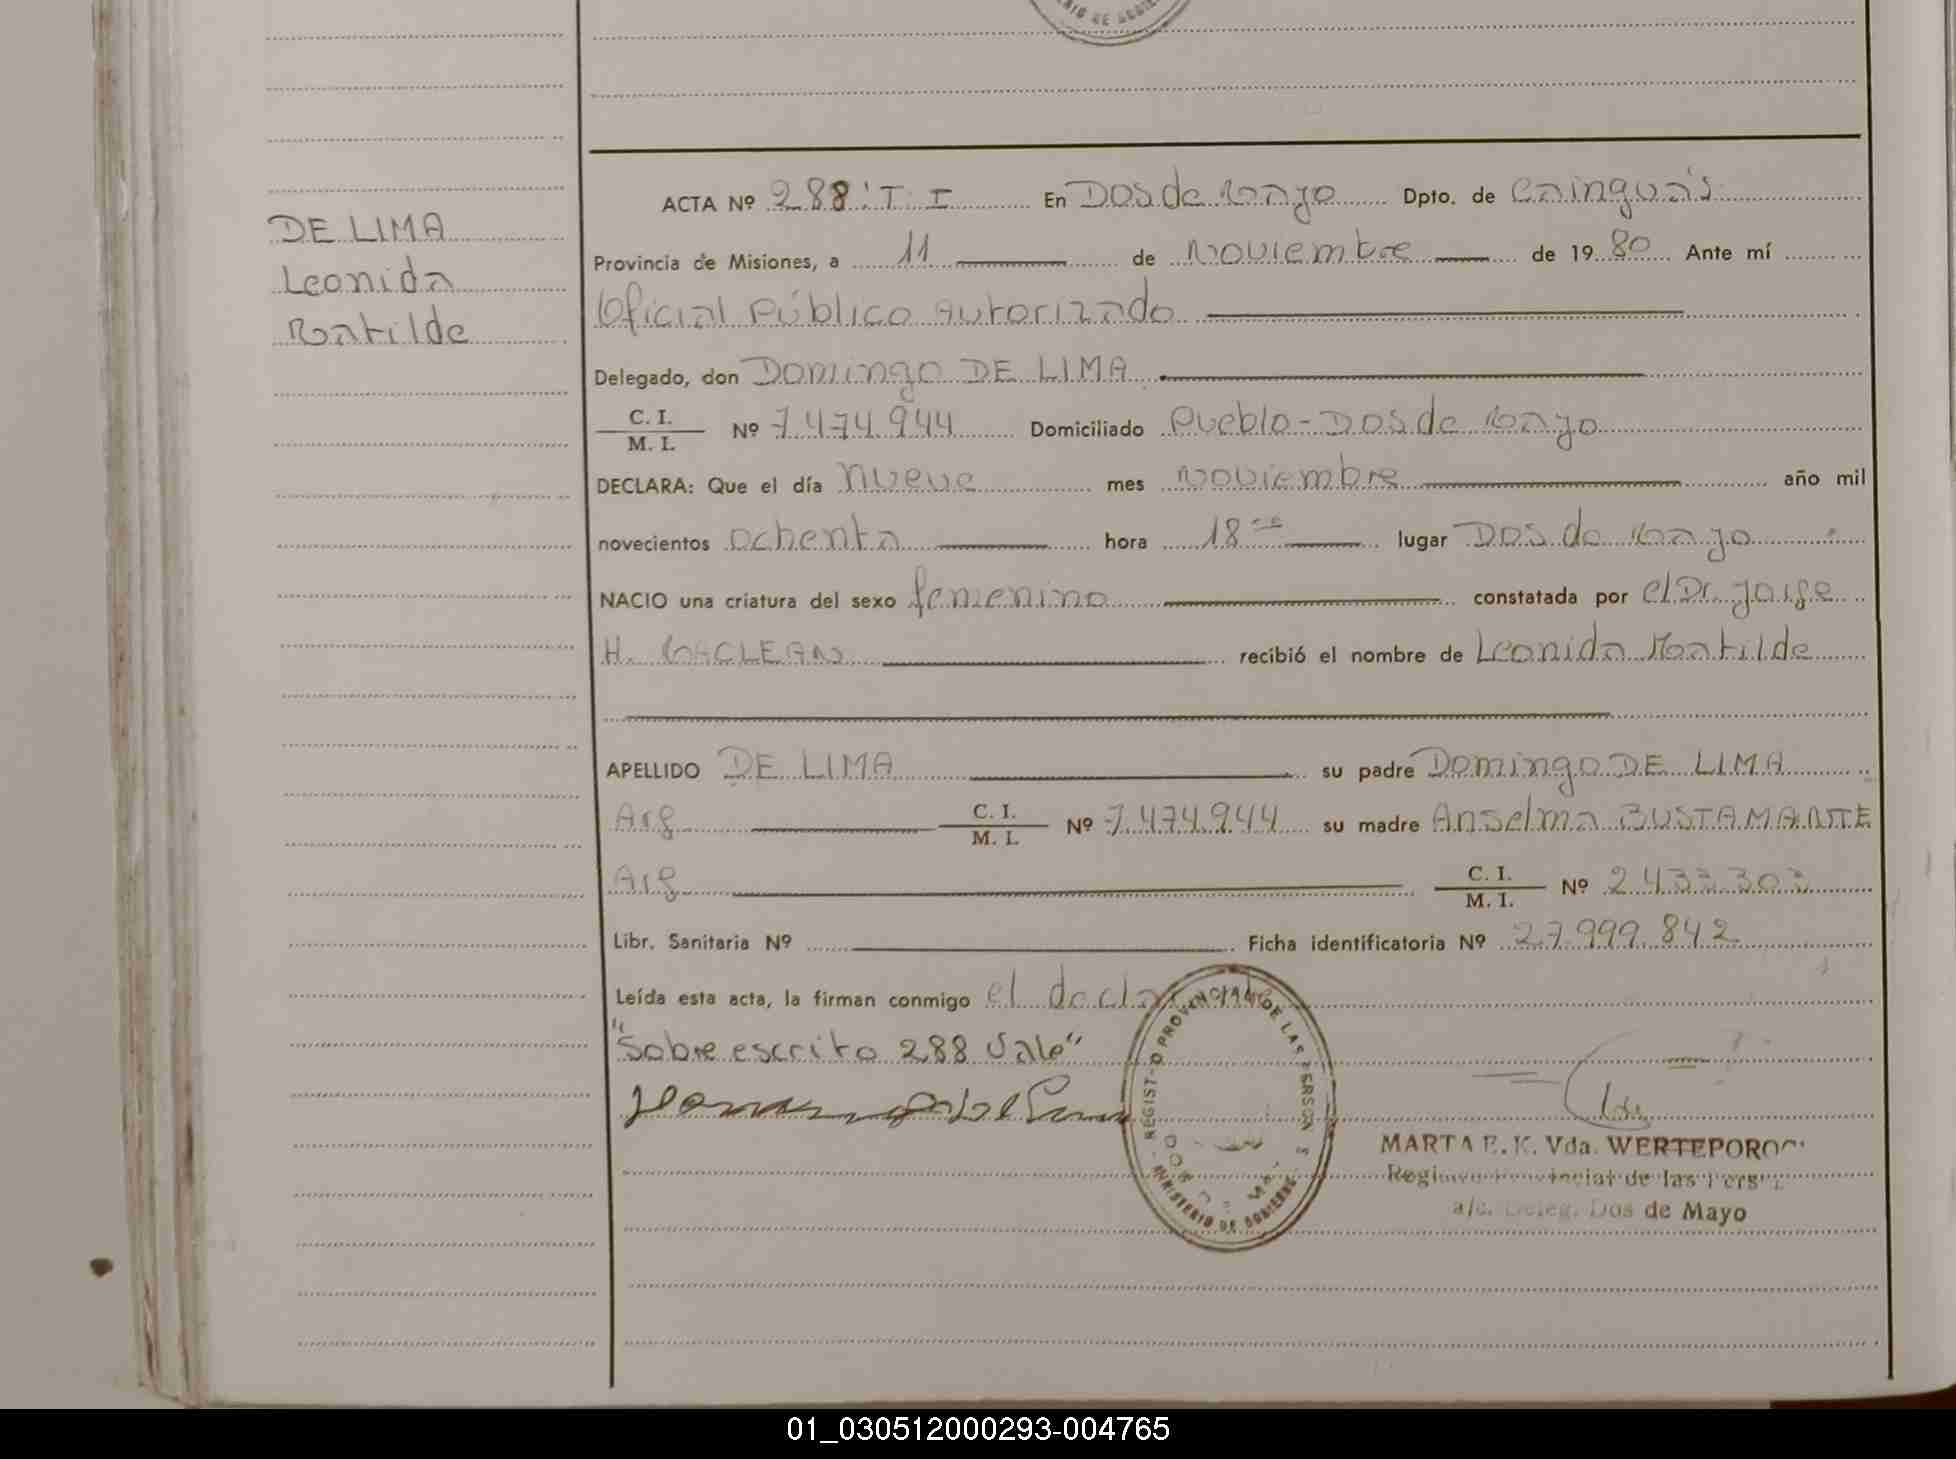 DE LIMA
Leonida
Matilde
ACTA Nº 288 : T. I En Dos de Mayo Dpto. de Cainguás
Provincia de Misiones, a 11 de Noviembre de 1980 Ante mí
Oficial Público Autorizado
Delegado, don Domingo DE LIMA
C. I. / M. I. Nº 7.474.944 Domiciliado Pueblo - Dos de Mayo
DECLARA: Que el día nueve mes Noviembre año mil
novecientos ochenta hora 18 lugar Dos de Mayo
NACIO una criatura del sexo femenino constatada por el Dr. Jorge
H. MACLEAN recibió el nombre de Leonida Matilde
APELLIDO DE LIMA su padre Domingo DE LIMA
Arg C. I. / M. I. Nº 7.474.944 su madre Anselma BUSTAMANTE
Arg C. I. / M. I. Nº 2.433.303
Libr. Sanitaria Nº Ficha identificatoria Nº 27.999.842
Leída esta acta, la firman conmigo el
"Sobre escrito 288 Vale"
REGISTRO PROVINCIAL DE LAS PERSONAS
MINISTERIO DE GOBIERNO
MARTA E. K. Vda.
Provincial de las
a/c. Deleg. Dos de Mayo
01_030512000293-004765